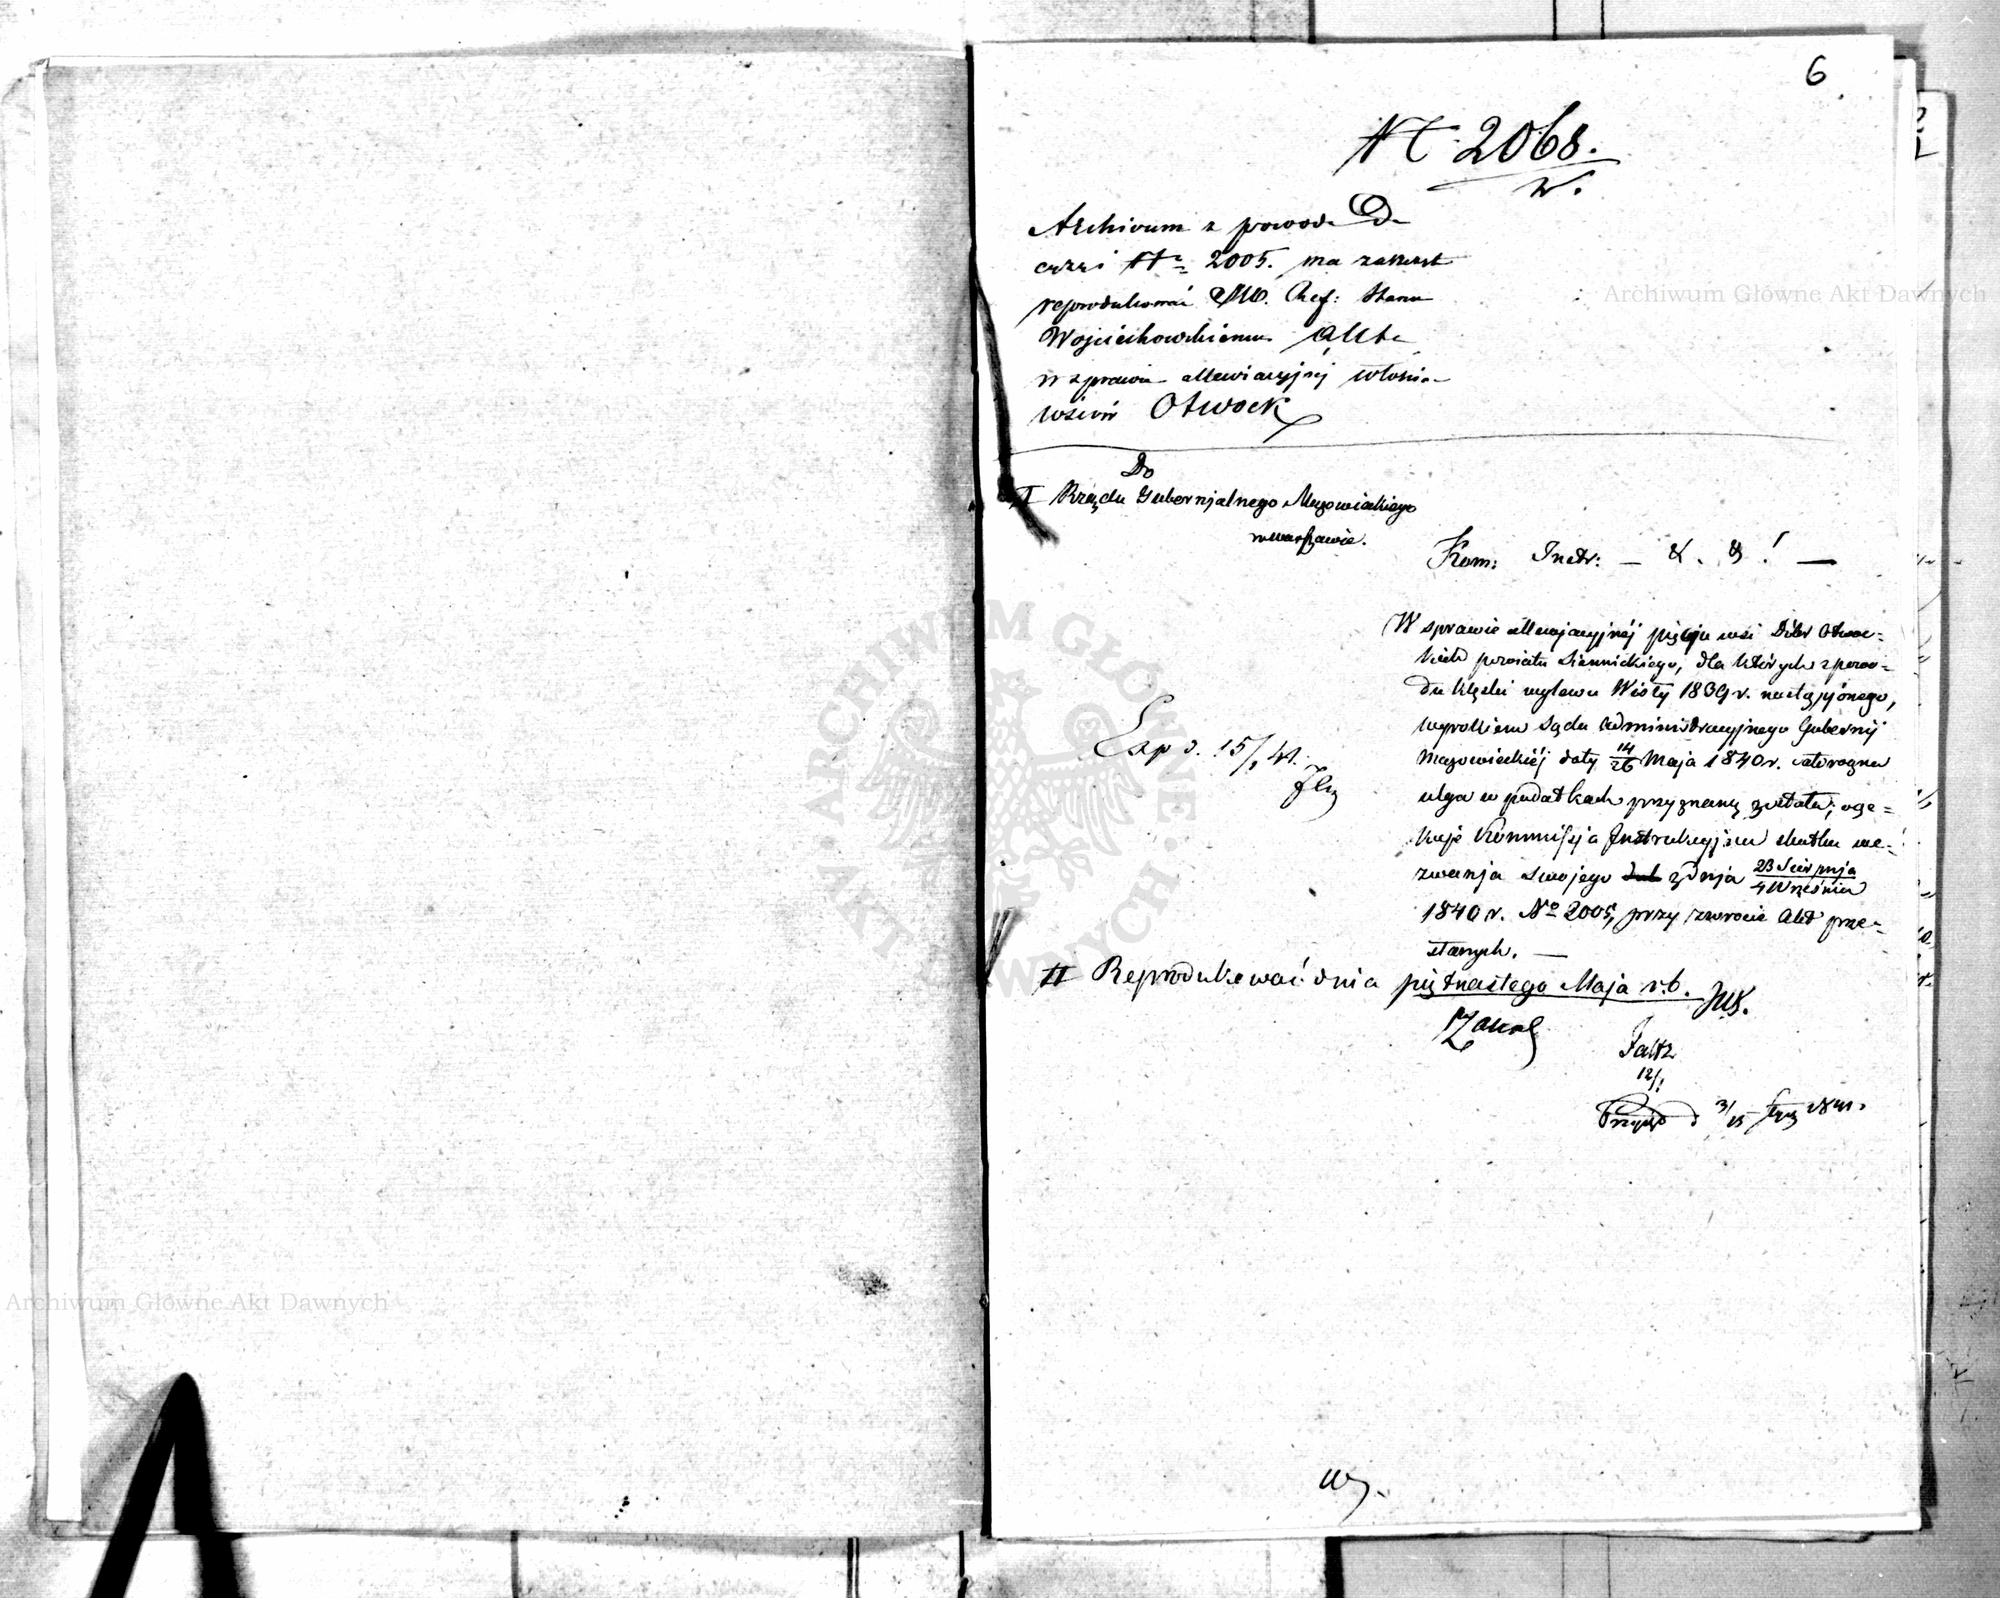 6
N 2068.
w.
Archivum z powodu
N 2005. ma zaraz
reprodukować Ref: Stanu
Wojciechowskiemu Akta
w sprawie allewiacyjnéj włości
Otwock
Do
I Rządu Gubernjalnego Mazowieckiego
w Warszawie.
Kom: Instr: — & . & ! —
W sprawie allewjacyjnéj pięciu wsi Dóbr Otwoc=
kich powiatu Siennickiego, dla których z powo=
du klęski wylewu Wisły 1839 r. nastąpionego,
wyrokiem Sądu Administracyjnego Gubernij
Mazowieckiéj daty 14/26 Maja 1840 r.
ulga w podatkach przyznaną została; ocze=
kuje Kommissja Instrukcyjna skutku we=
zwania swojego z dnia 23 Sierpnia/4 Września
1840 r. No 2005, przy zwrocie Akt prze=
słanych. —
Exp d. 15/1 41.
II Reprodukować dnia piętnastego Maja r.b.
12/1
3/15 1841.
Archiwum Główne Akt Dawnych
Archiwum Główne Akt Dawnych
ARCHIWUM GŁÓWNE AKT DAWNYCH